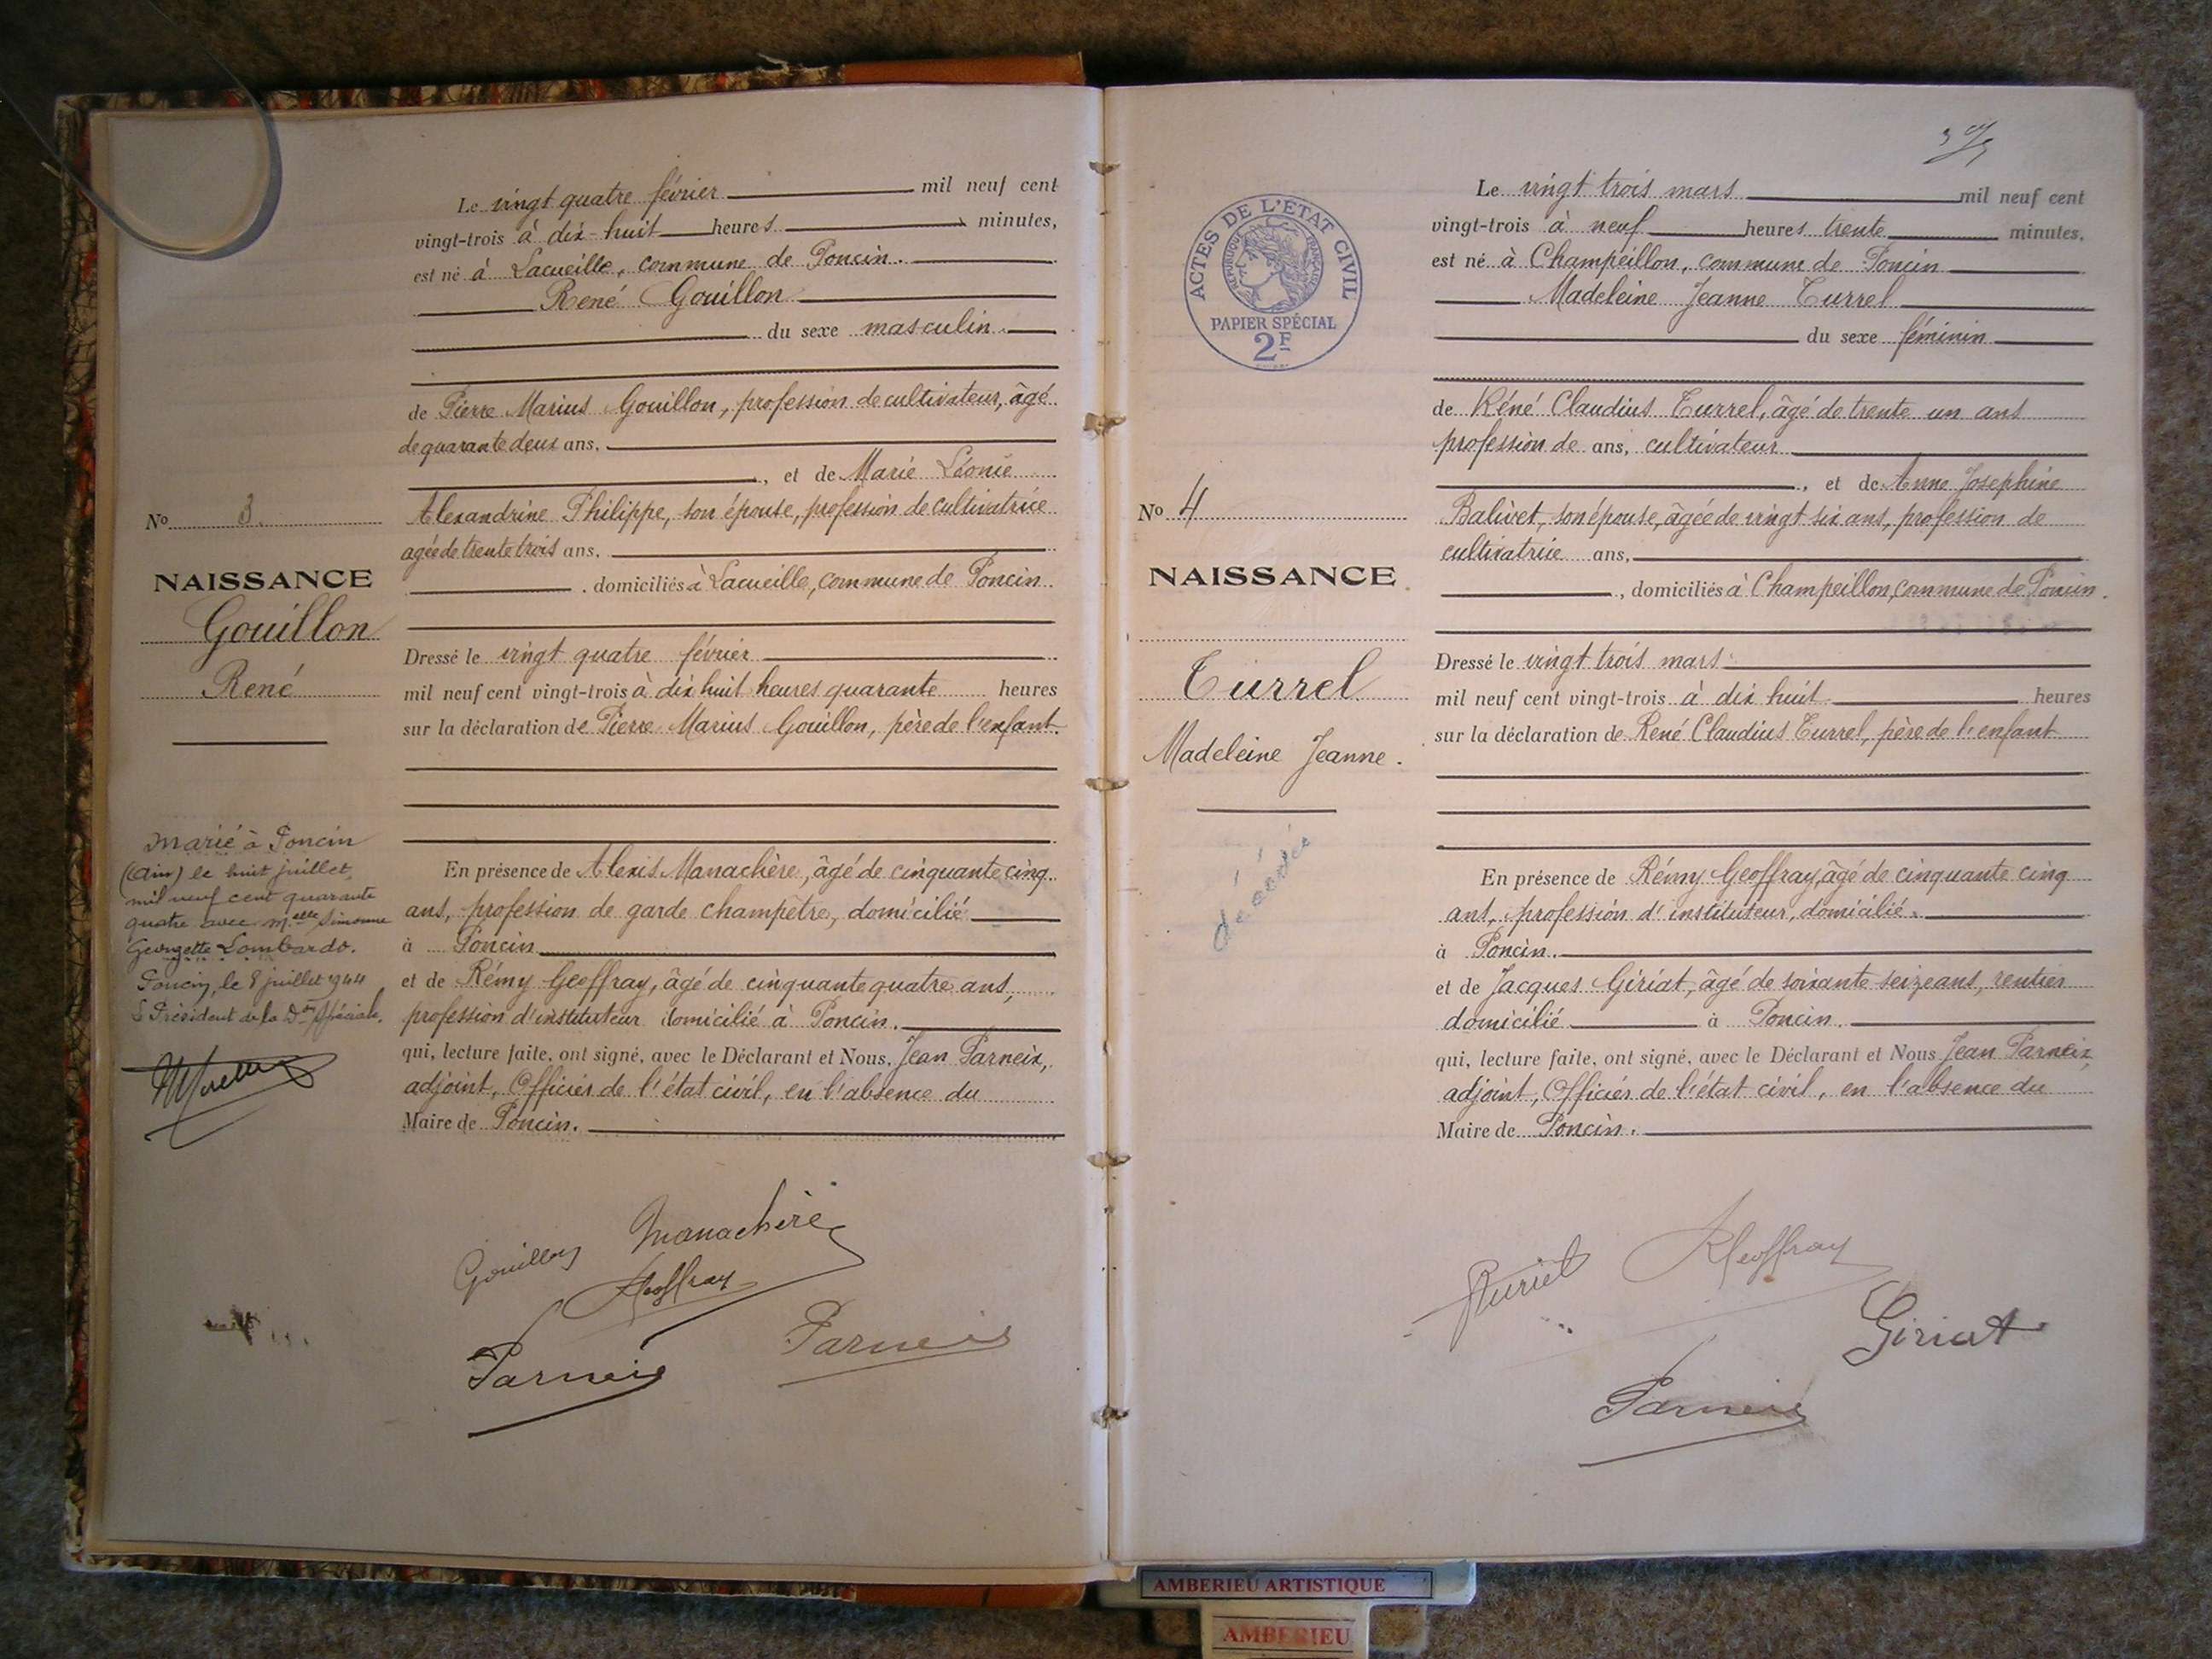 Le vingt quatre février mil neuf cent
vingt-trois à dix-huit heures minutes,
est né à Lacueille, commune de Poncin.
René Gouillon
du sexe masculin.
de Pierre Marius Gouillon, profession de cultivateur, âgé
de quarante deux ans.
, et de Marie Léonie
Alexandrine Philippe, son épouse, profession de cultivatrice
agée de trente trois ans.
. domiciliés à Lacueille, commune de Poncin.
Dressé le vingt quatre février
mil neuf cent vingt-trois à dix huit heures quarante heures
sur la déclaration de Pierre Marius Gouillon, père de l'enfant.
En présence de Alexis Manachère, âgé de cinquante cinq
ans, profession de garde champêtre, domicilié
à Poncin
et de Rémy Geoffray, âgé de cinquante quatre ans,
profession d'instituteur domicilié à Poncin.
qui, lecture faite, ont signé, avec le Déclarant et Nous, Jean Parneix,
adjoint, Officier de l'état civil, en l'absence du
Maire de Poncin.
No 3.
NAISSANCE
Gouillon
René
Marié à Poncin
(Ain) le huit juillet
mil neuf cent quarante
quatre avec Melle Simonne
Georgette Lombardo.
Poncin, le 8 juillet 1944
Le Président de la Don Spéciale.
Gouillon Manachère
RGeoffray
Parneix Parneix
ACTES DE L'ETAT CIVIL
REPUBLIQUE FRANÇAISE
PAPIER SPÉCIAL
2F
Le vingt trois mars mil neuf cent
vingt-trois à neuf heures trente minutes,
est né à Champeillon, commune de Poncin
Madeleine Jeanne Turrel
du sexe féminin
de Réné Claudius Turrel, âgé de trente un ans
profession de ans, cultivateur
, et de Anne Josephine
Balivet, son épouse, âgée de vingt six ans, profession de
cultivatrice ans,
, domiciliés à Champeillon, commune de Poncin.
Dressé le vingt trois mars
mil neuf cent vingt-trois à dix huit heures
sur la déclaration de René Claudius Turrel, père de l'enfant
En présence de Rémy Geoffray, âgé de cinquante cinq
ans, profession d'instituteur, domicilié
à Poncin.
et de Jacques Giriat, âgé de soixante seize ans, rentier
domicilié à Poncin.
qui, lecture faite, ont signé, avec le Déclarant et Nous Jean Parneix,
adjoint, Officier de l'état civil, en l'absence du
Maire de Poncin.
No 4
NAISSANCE
Turrel
Madeleine Jeanne.
décédée
RGeoffray
Giriat
Parneix
AMBERIEU ARTISTIQUE
AMBERIEU